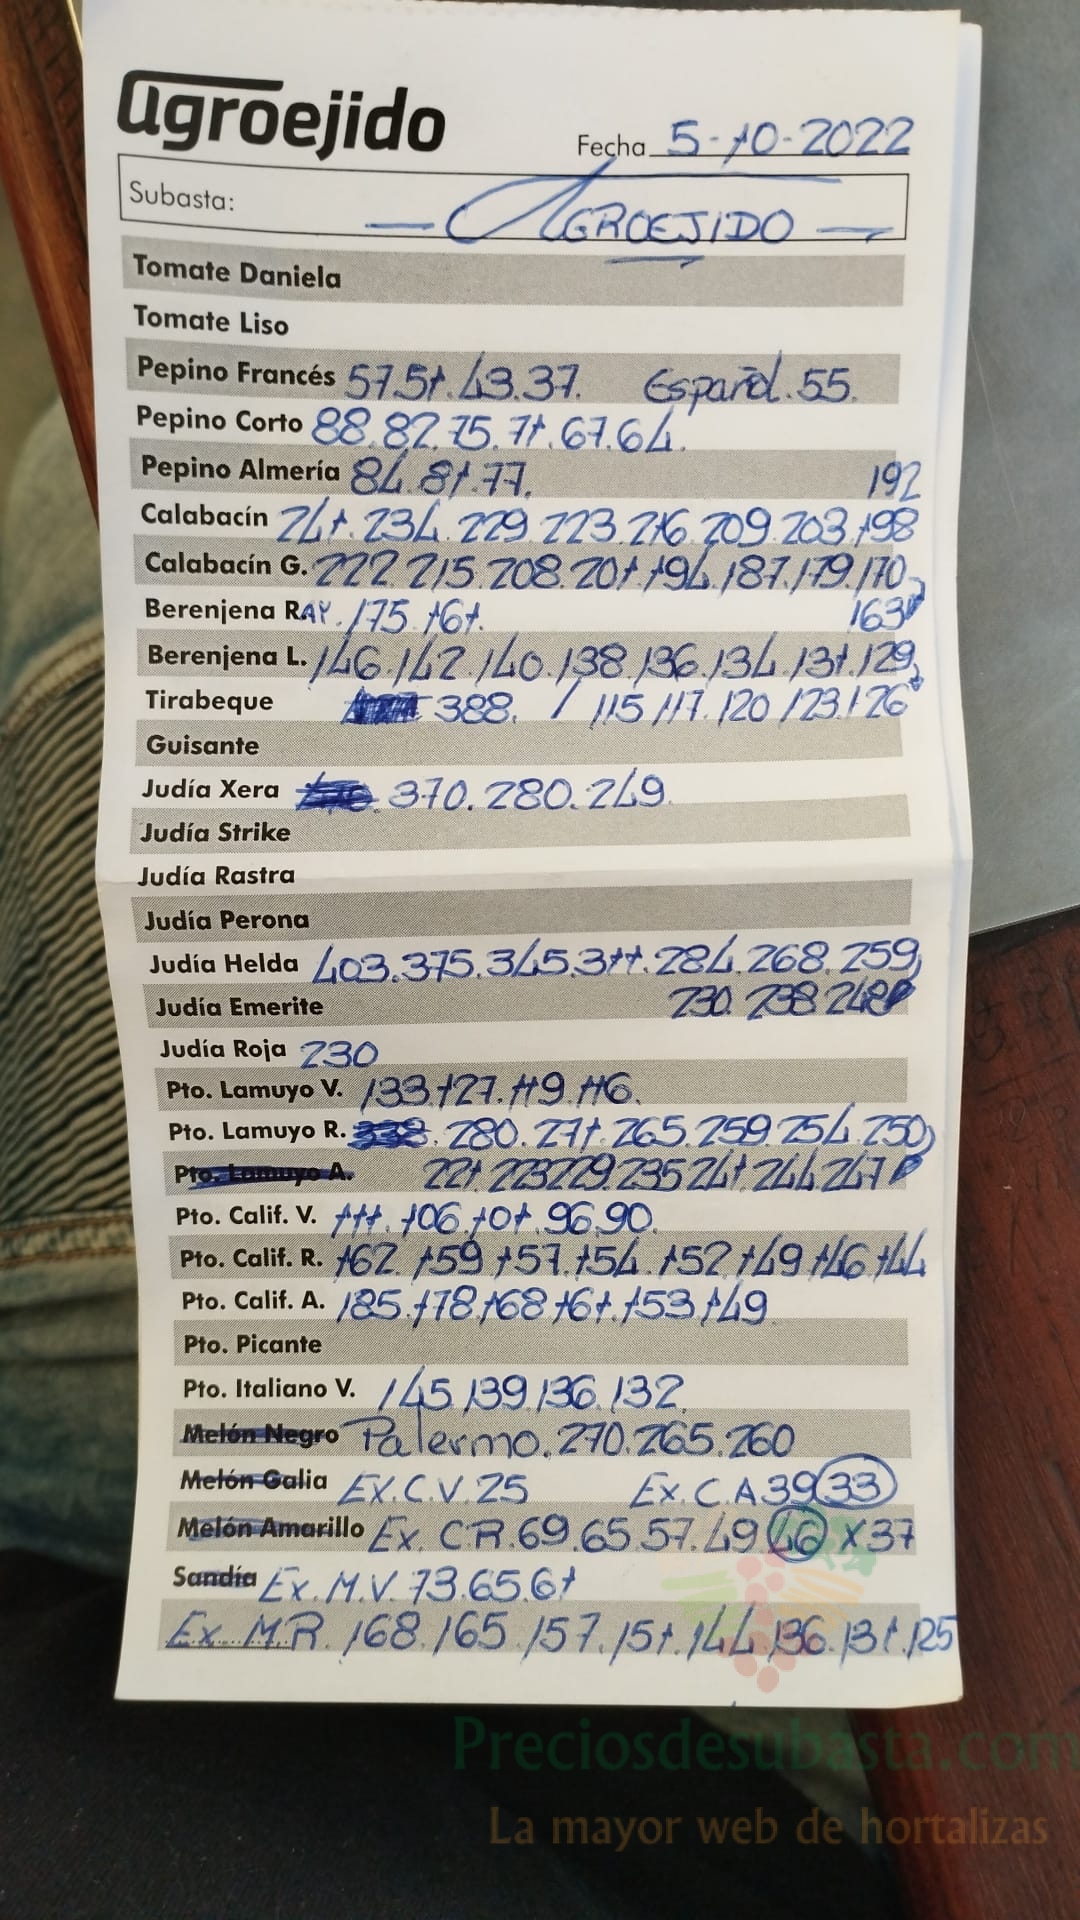 agroejido
Fecha 5-10-2022
Subasta: — AGROEJIDO —
Tomate Daniela
Tomate Liso
Pepino Francés 57.51.43.37. Español.55.
Pepino Corto 88.82.75.71.67.64.
Pepino Almería 84.81.77. 192
Calabacín 241.234.229.223.216.209.203.198
Calabacín G. 222.215.208.201.194.187.179.170
Berenjena RAY. 175.161. 163
Berenjena L. 146.142.140.138.136.134.131.129
Tirabeque 388. / 115.117.120.123.126
Guisante
Judía Xera 370.280.249
Judía Strike
Judía Rastra
Judía Perona
Judía Helda 403.375.345.311.284.268.259
Judía Emerite 230.238.248
Judía Roja 230
Pto. Lamuyo V. 133.127.119.116.
Pto. Lamuyo R. 280.271.265.259.254.250
Pto. Lamuyo A. 221.223.229.235.241.244.247
Pto. Calif. V. 111.106.101.96.90.
Pto. Calif. R. 162.159.157.154.152.149.146.144
Pto. Calif. A. 185.178.168.161.153.149
Pto. Picante
Pto. Italiano V. 145.139.136.132.
Melón Negro Palermo.270.265.260
Melón Galia Ex.C.V.25 Ex.C.A 39 33
Melón Amarillo Ex.C.R.69.65.57.49 46 x 37
Sandía Ex.M.V.73.65.61
Ex M.R. 168.165.157.151.144.136.131.125
Preciosdesubasta.com
La mayor web de hortalizas